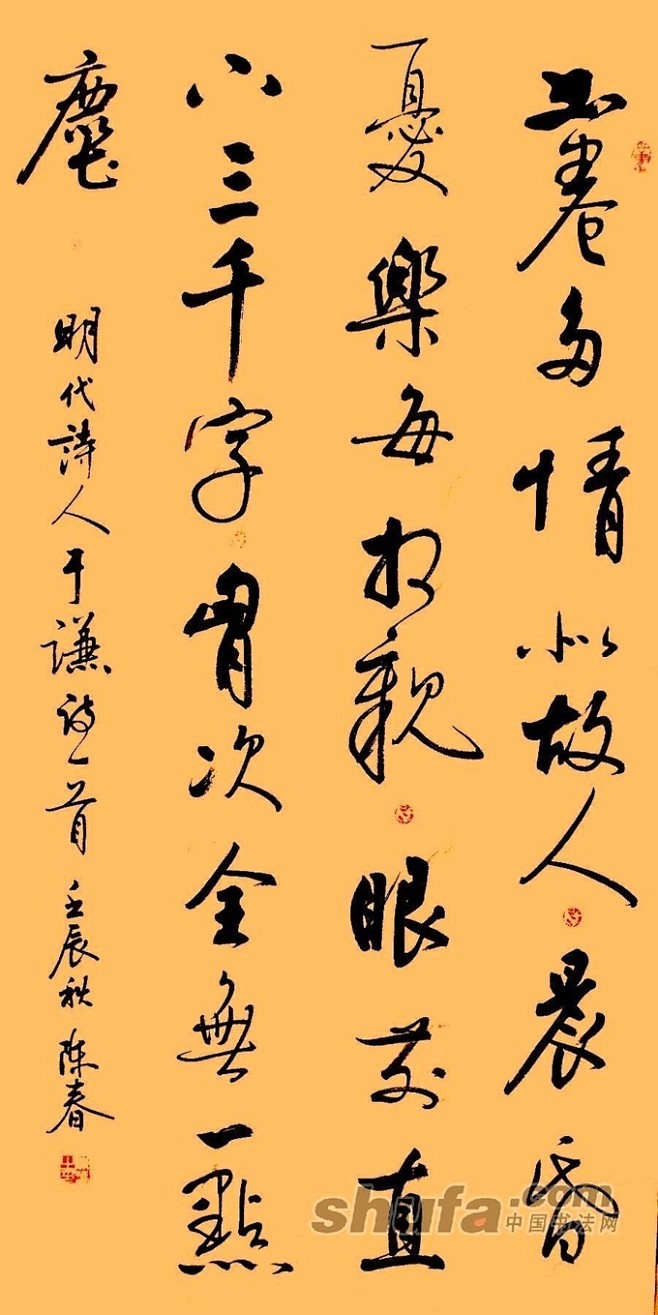 书卷多情似故人晨昏
憂樂每相親眼前直
下三千字胷次全無一點
塵
明代詩人于謙诗一首 壬辰秋 陈春
shufa.com
中国书法网